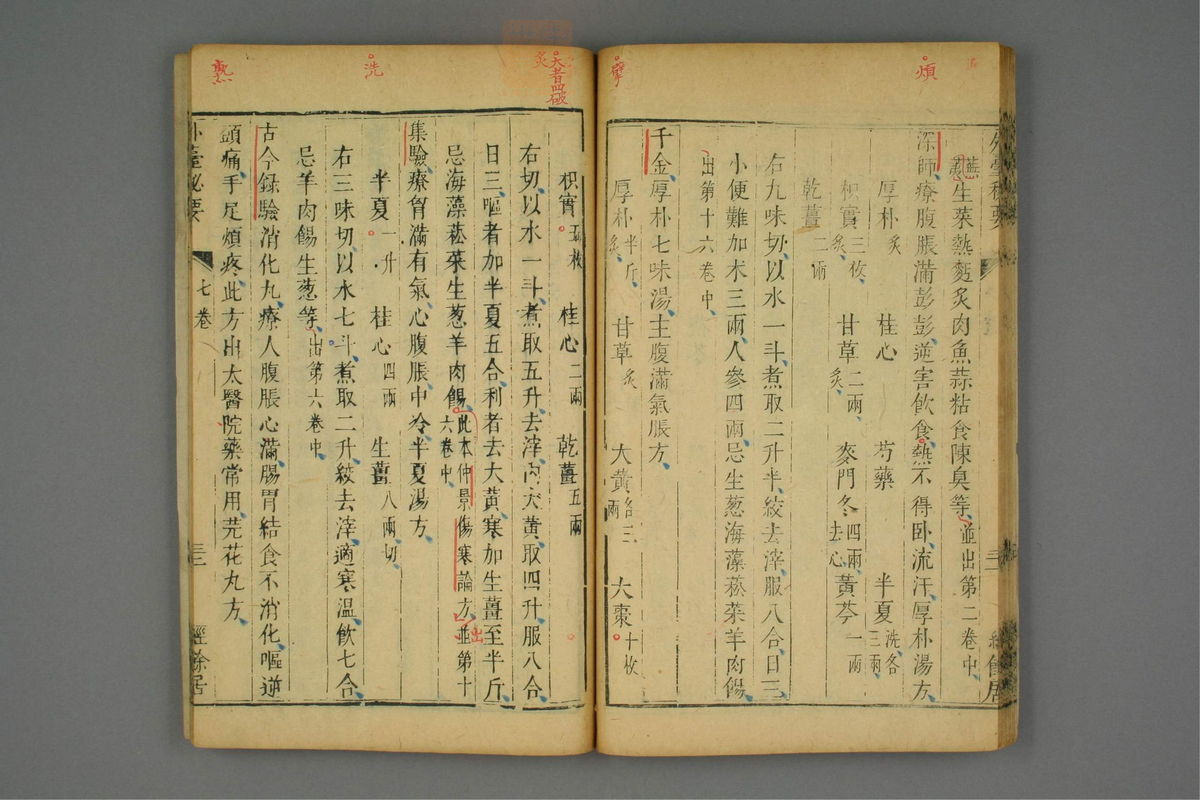 煩
擘
外臺秘要
生菜熱麪炙肉魚蒜粘食陳臭等並出第二卷中
深師療腹脹滿彭彭逆害飲食熱不得卧流汗厚朴湯方
厚朴炙 桂心 芍藥 半夏洗各三兩
枳實三枚炙 甘草二兩炙 麥門冬四兩去心 黃芩一兩
乾薑二兩
右九味切以水一斗煮取二升半絞去滓服八合日三
小便難加朮三兩人參四兩忌生葱海藻菘菜羊肉餳
出第十六卷中
千金厚朴七味湯主腹滿氣脹方
厚朴半斤炙 甘草炙 大黃各三兩 大棗十枚
大者四破
炙
洗
熟
枳實五枚 桂心二兩 乾薑五兩
右切以水一斗煮取五升去滓內大黃取四升服八合
日三嘔者加半夏五合利者去大黃寒加生薑至半斤
忌海藻菘菜生葱羊肉餳此本仲景傷寒論方並出第十六卷中
集驗療胷滿有氣心腹脹中冷半夏湯方
半夏一升 桂心四兩 生薑八兩切
右三味切以水七斗煮取二升絞去滓適寒溫飲七合
忌羊肉餳生葱等出第六卷中
古今録驗消化丸療人腹脹心滿腸胃結食不消化嘔逆
頭痛手足煩疼此方出太醫院藥常用芫花丸方
外臺秘要 七卷 三 經餘居